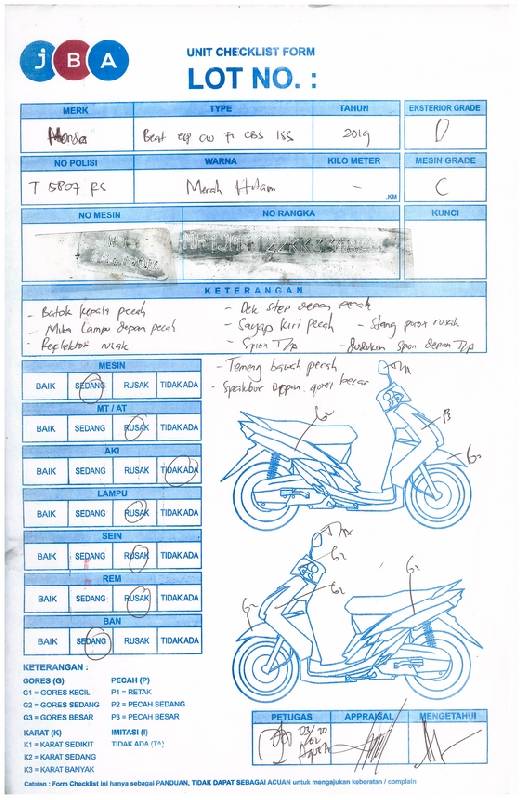 JBA
UNIT CHECKLIST FORM
LOT NO. :
MERK TYPE TAHUN EKSTERIOR GRADE
Honda Beat esp cw fi CBS ISS 2019 D
NO POLISI WARNA KILO METER MESIN GRADE
T 5807 Merah Hitam - .KM C
NO MESIN NO RANGKA KUNCI
KETERANGAN
- Batok kepala pecah - Dek step depan pecah
- Mika Lampu depan pecah - Sayap kiri pecah - Stang rusak
- Reflektor rusak - Spion T/A - dudukan depan T/A
- Tameng bawah pecah
- Spakbor depan gores
MESIN
BAIK SEDANG RUSAK TIDAKADA
MT / AT
BAIK SEDANG RUSAK TIDAKADA
AKI
BAIK SEDANG RUSAK TIDAKADA
LAMPU
BAIK SEDANG RUSAK TIDAKADA
SEIN
BAIK SEDANG RUSAK TIDAKADA
REM
BAIK SEDANG RUSAK TIDAKADA
BAN
BAIK SEDANG RUSAK TIDAKADA
G2
G2
G2
G2
KETERANGAN :
GORES (G) PECAH (P)
G1 = GORES KECIL P1 = RETAK
G2 = GORES SEDANG P2 = PECAH SEDANG
G3 = GORES BESAR P3 = PECAH BESAR
KARAT (K) IMITASI (I)
K1 = KARAT SEDIKIT TIDAK ADA (TA)
K2 = KARAT SEDANG
K3 = KARAT BANYAK
PETUGAS APPRAISAL MENGETAHUI
Catatan : Form Checklist ini hanya sebagai PANDUAN, TIDAK DAPAT SEBAGAI ACUAN untuk mengajukan keberatan / complain